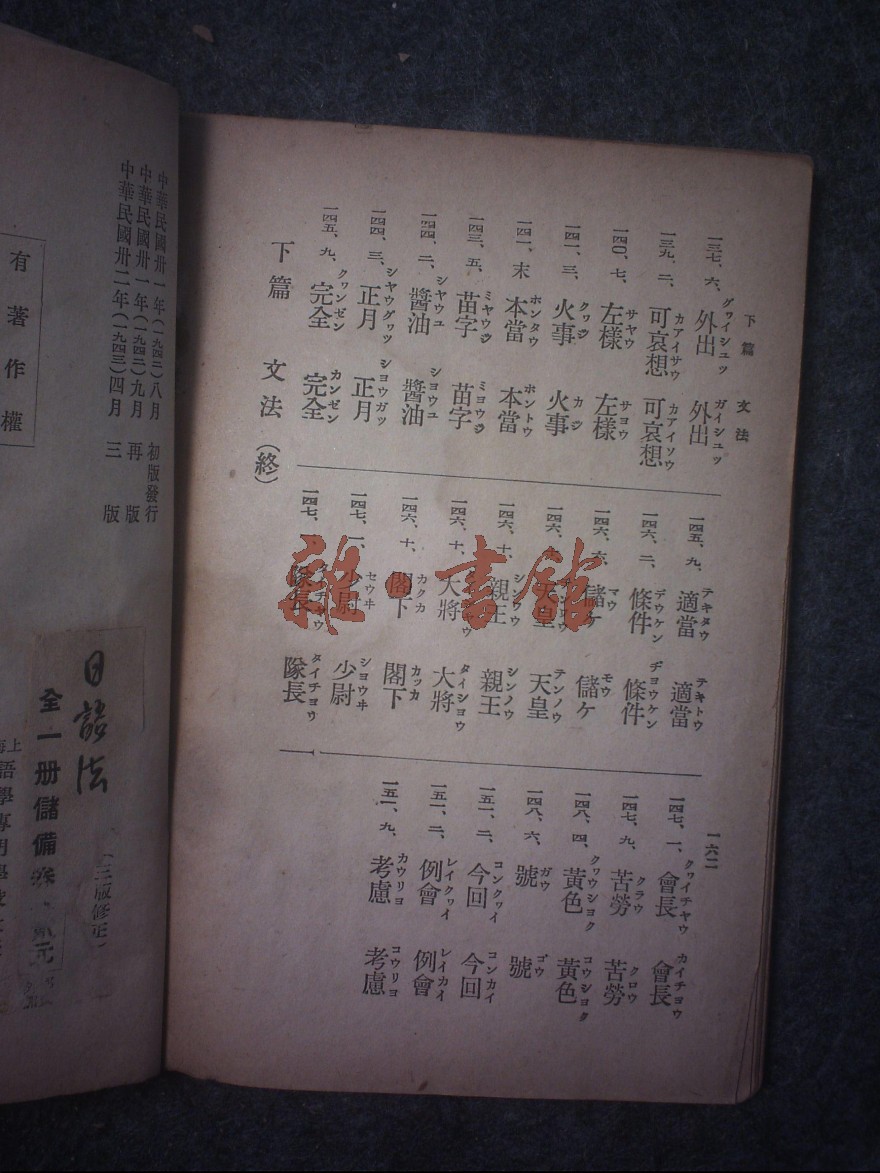 下篇 文法
一六二
一三七、六、外出 グワイシユツ 外出 ガイシユツ
一三九、二、可哀想 カアイサウ 可哀想 カアイソウ
一四〇、七、左樣 サヤウ 左樣 サヨウ
一四一、三、火事 クワジ 火事 カジ
一四一、末 本當 ホンタウ 本當 ホントウ
一四三、五、苗字 ミヤウジ 苗字 ミヨウジ
一四四、二、醬油 シヤウユ 醬油 シヨウユ
一四四、三、正月 シヤウグワツ 正月 シヨウガツ
一四五、九、完全 クワンゼン 完全 カンゼン
下篇 文法(終)
一四五、九、適當 テキタウ 適當 テキトウ
一四六、二、條件 デウケン 條件 ヂヨウケン
一四六、六、儲ケ マウ 儲ケ モウ
天皇 天皇 テンノウ
一四六、十、親王 シンワウ 親王 シンノウ
一四六、十、大將 大將 タイシヨウ
一四六、十、閣下 カクカ 閣下 カッカ
一四七、一、少尉 セウヰ 少尉 シヨウヰ
一四七、隊長 隊長 タイチヨウ
一四七、一、會長 クワイチヤウ 會長 カイチヨウ
一四七、九、苦勞 クラウ 苦勞 クロウ
一四八、四、黃色 クワウシヨク 黃色 コウシヨク
一四八、六、號 ガウ 號 ゴウ
一五一、二、今回 コンクワイ 今回 コンカイ
一五一、二、例會 レイクワイ 例會 レイカイ
一五一、九、考慮 カウリヨ 考慮 コウリヨ
雜·書館
中華民國卅一年(一九四二)八月 初版發行
中華民國卅一年(一九四二)九月 再版
中華民國卅二年(一九四三)四月 三版
有著作權
(三版修正)
日語法
全一册儲備券
上海
語學專門學校